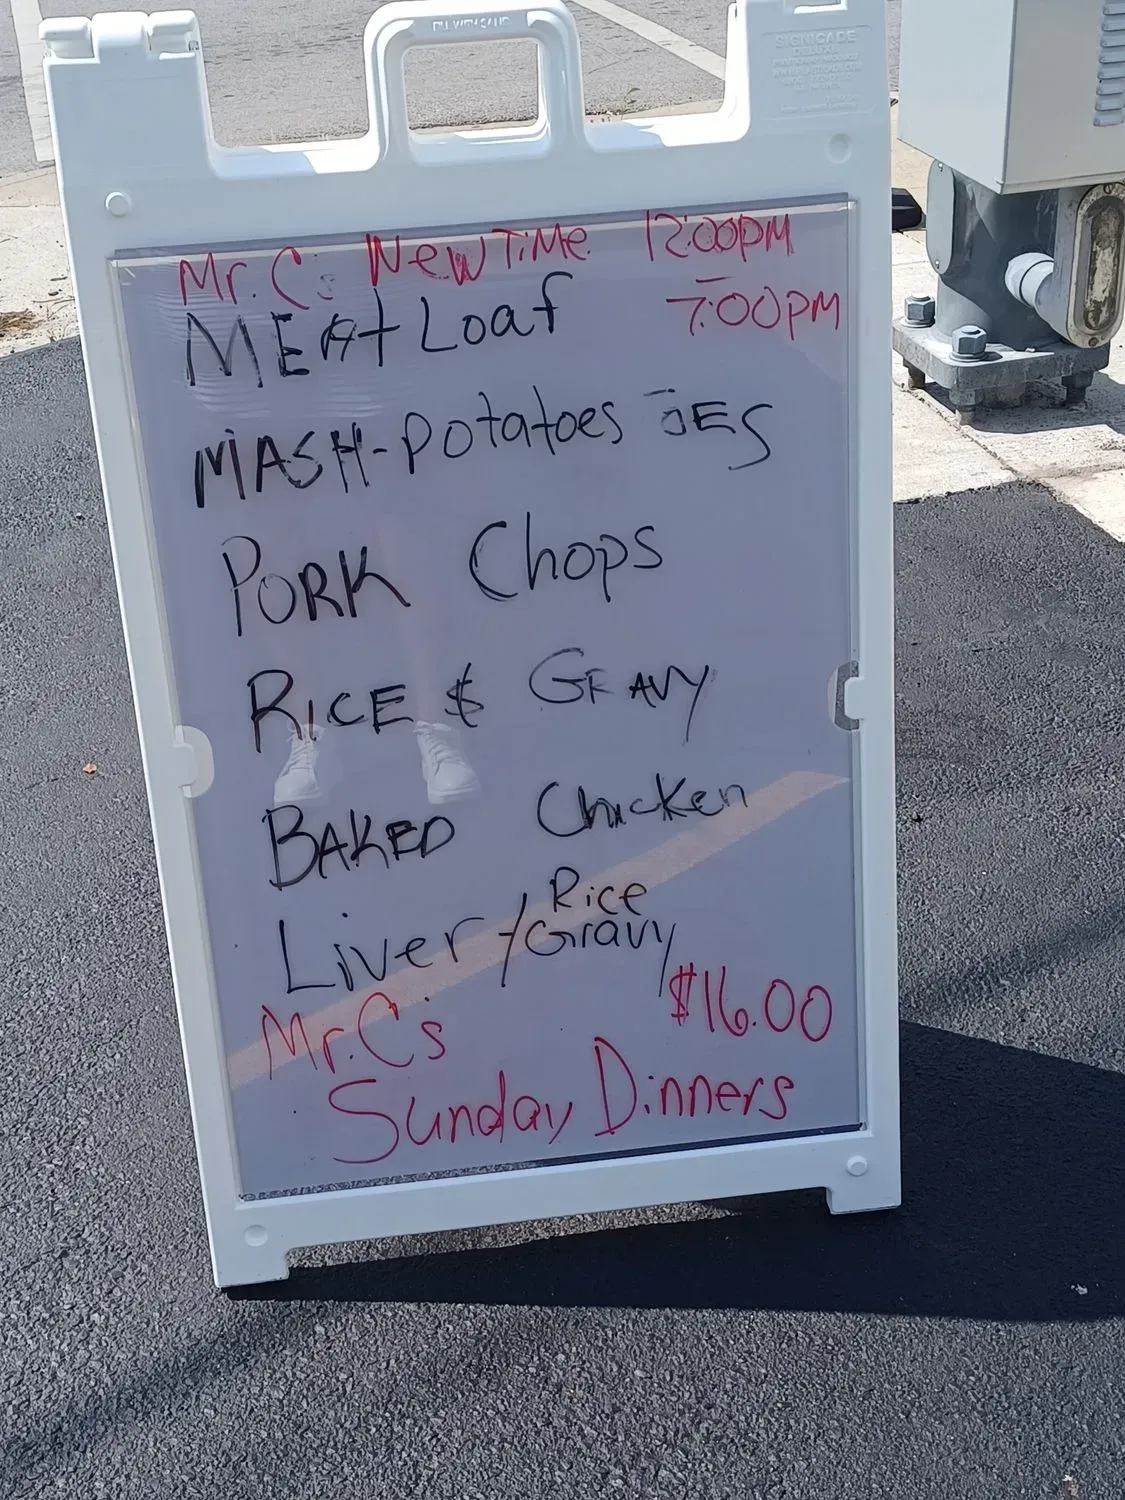 FILL W/ SAND
SIGNICADE
DELUXE
Mr. C's New TiMe 12:00PM
- 7:00PM
MEAt Loaf
MASH-Potatoes OES
PORK Chops
RICE & GRAVY
BAKED Chicken
Liver / Rice
Gravy
$16.00
Mr. C's
Sunday Dinners